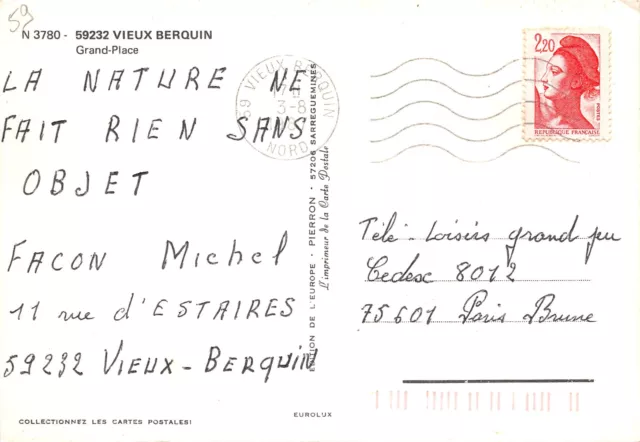 59
N 3780 - 59232 VIEUX BERQUIN
Grand-Place
LA NATURE NE
FAIT RIEN SANS
OBJET
FACON Michel
11 rue d'ESTAIRES
59232 VIEUX-BERQUIN
COLLECTIONNEZ LES CARTES POSTALES!
59 VIEUX BERQUIN
3-8
NORD
EDITION DE L'EUROPE - PIERRON - 57206 SARREGUEMINES
L'imprimeur de la Carte Postale
EUROLUX
2,20
POSTES
REPUBLIQUE FRANÇAISE
Télé-Loisirs grand jeu
Cedesc 8012
75601 Paris Brune